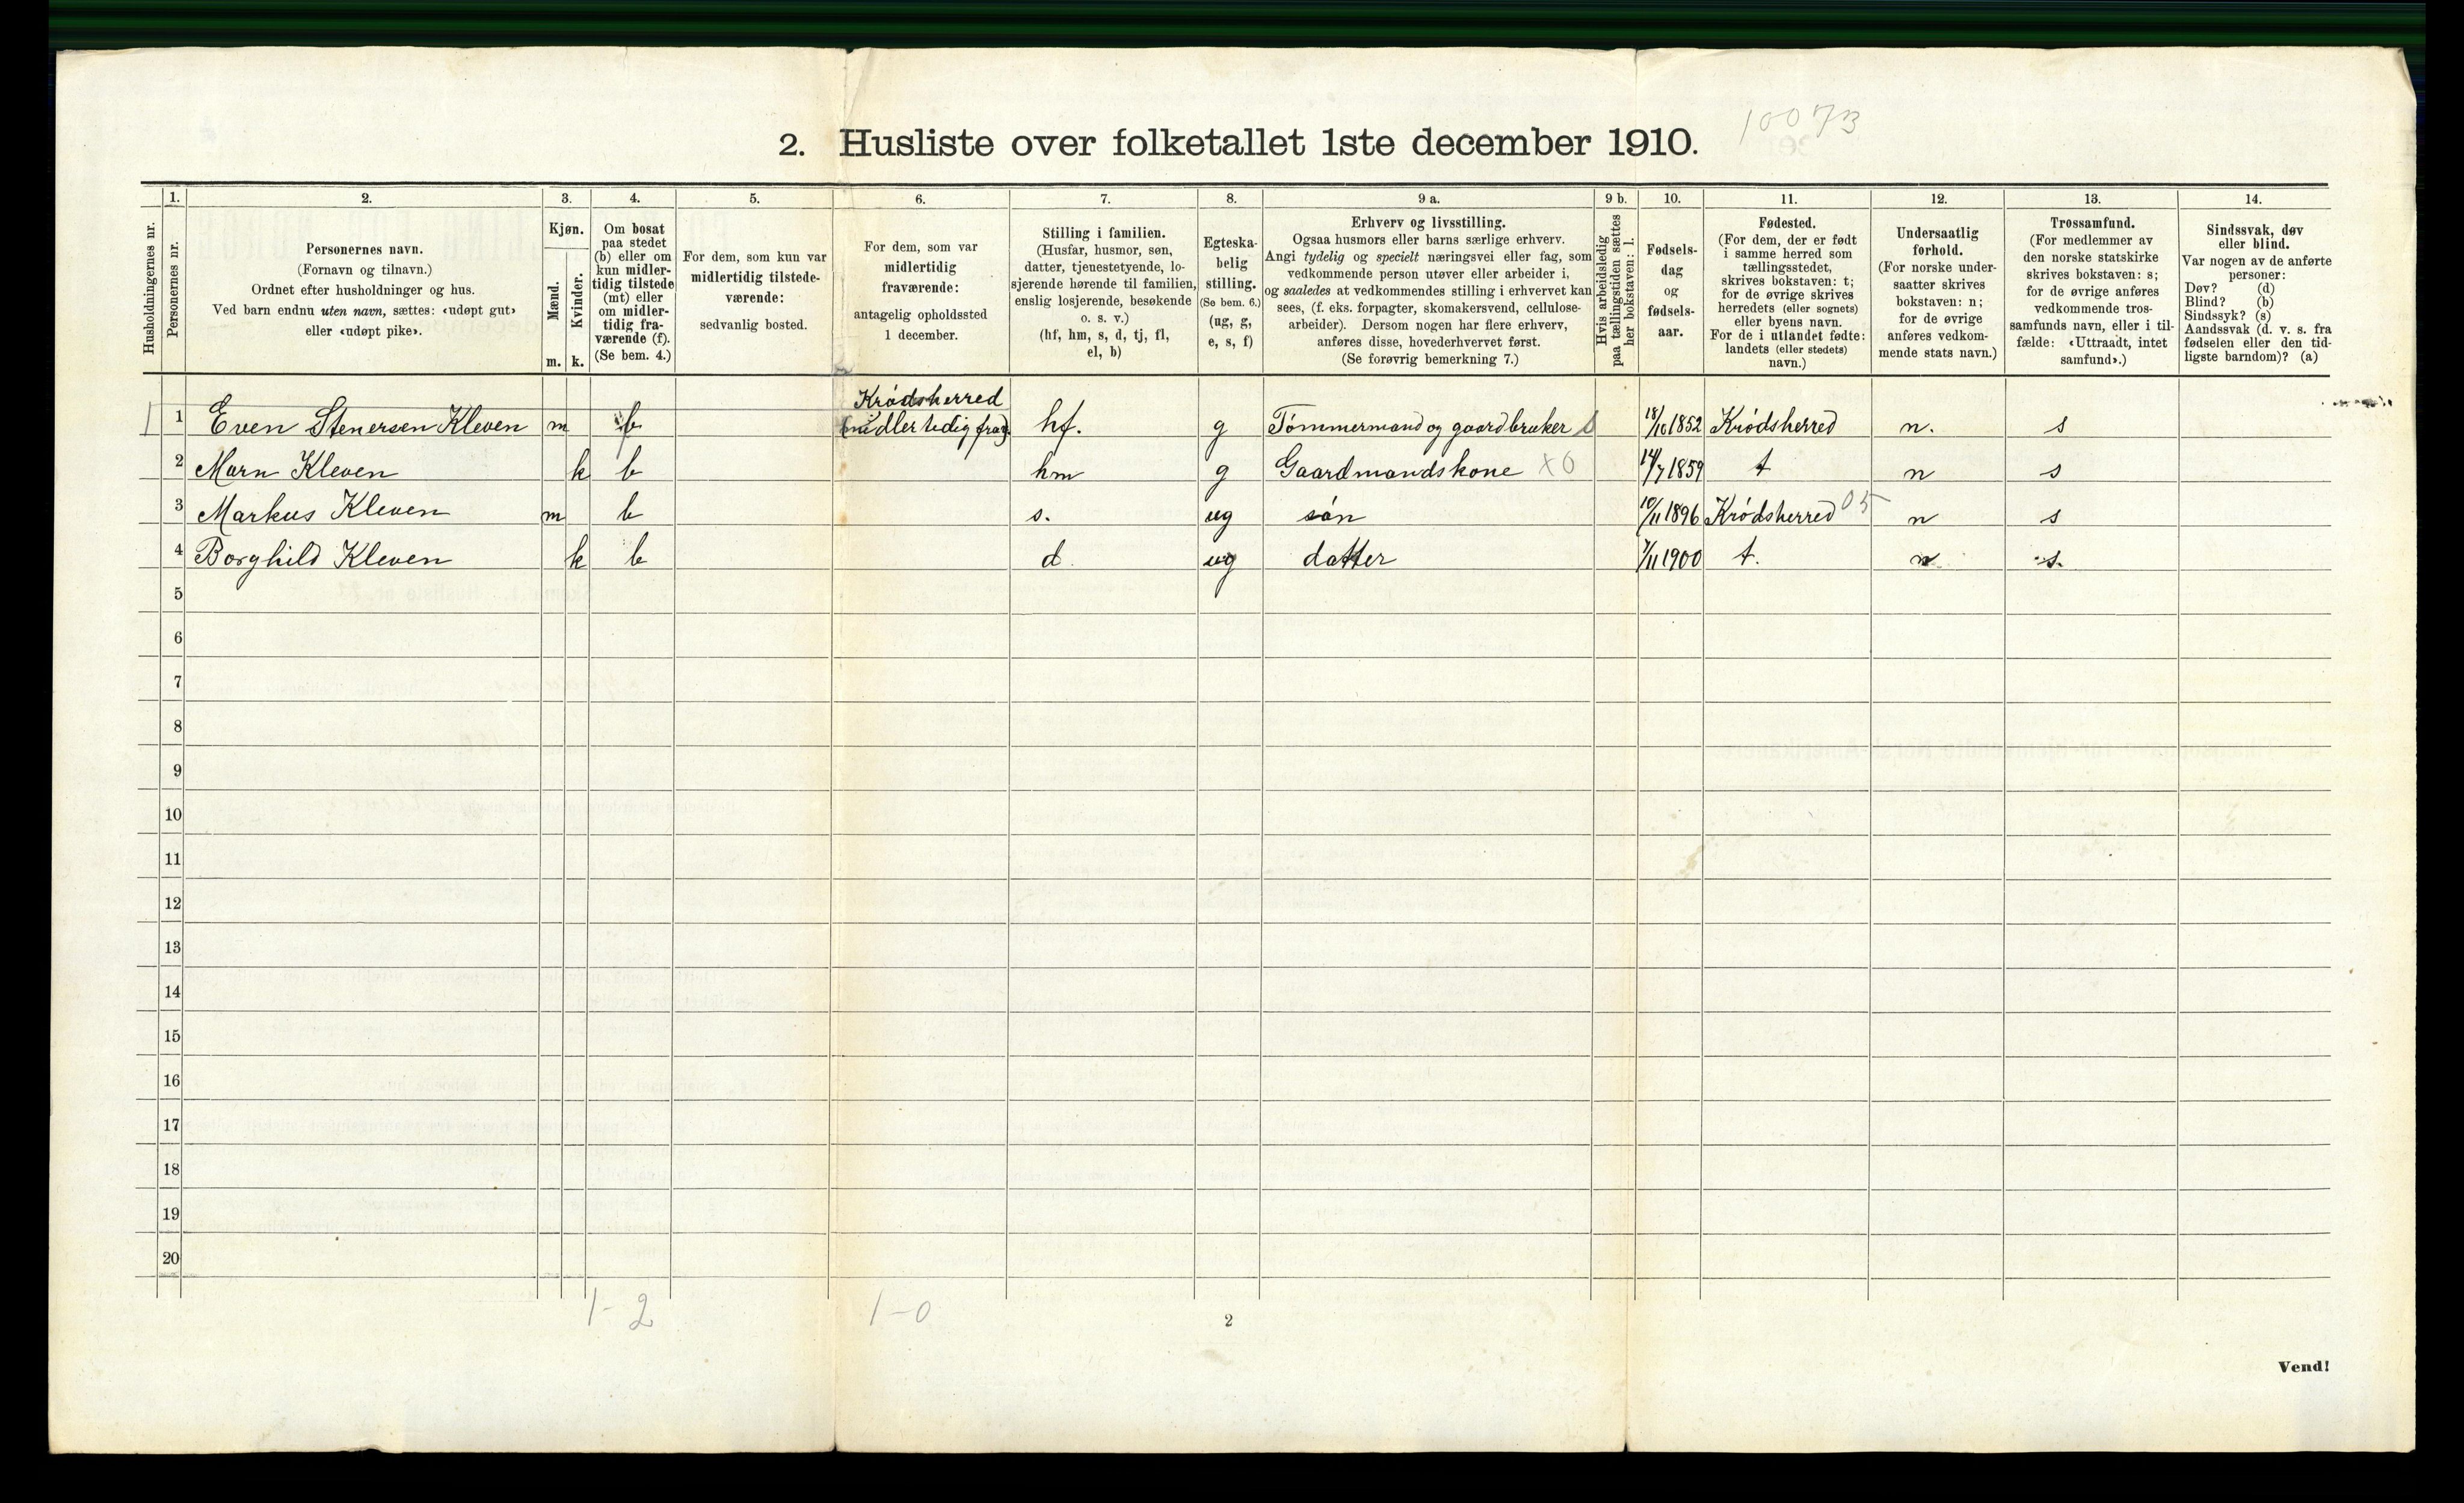 10073
2. Husliste over folketallet 1ste december 1910.
Husholdningernes nr.
1.
Personernes nr.
2.
Personernes navn.
(Fornavn og tilnavn.)
Ordnet efter husholdninger og hus.
Ved barn endnu uten navn, sættes: «udøpt gut»
eller «udøpt pike».
3.
Kjøn.
Mænd.
m.
Kvinder.
k.
4.
Om bosat
paa stedet
(b) eller om
kun midler-
tidig tilstede
(mt) eller
om midler-
tidig fra-
værende (f).
(Se bem. 4.)
5.
For dem, som kun var
midlertidig tilstede-
værende:
sedvanlig bosted.
6.
For dem, som var
midlertidig
fraværende:
antagelig opholdssted
1 december.
7.
Stilling i familien.
(Husfar, husmor, søn,
datter, tjenestetyende, lo-
sjerende hørende til familien,
enslig losjerende, besøkende
o. s. v.)
(hf, hm, s, d, tj, fl,
el, b)
8.
Egteska-
belig
stilling.
(Se bem. 6.)
(ug, g,
e, s, f)
9 a.
Erhverv og livsstilling.
Ogsaa husmors eller barns særlige erhverv.
Angi tydelig og specielt næringsvei eller fag, som
vedkommende person utøver eller arbeider i,
og saaledes at vedkommendes stilling i erhvervet kan
sees, (f. eks. forpagter, skomakersvend, cellulose-
arbeider). Dersom nogen har flere erhverv,
anføres disse, hovederhvervet først.
(Se forøvrig bemerkning 7.)
9 b.
Hvis arbeidsledig
paa tællingstiden sættes
her bokstaven: l.
10.
Fødsels-
dag
og
fødsels-
aar.
11.
Fødested.
(For dem, der er født
i samme herred som
tællingsstedet,
skrives bokstaven: t;
for de øvrige skrives
herredets (eller sognets)
eller byens navn.
For de i utlandet fødte:
landets (eller stedets)
navn.)
12.
Undersaatlig
forhold.
(For norske under-
saatter skrives
bokstaven: n;
for de øvrige
anføres vedkom-
mende stats navn.)
13.
Trossamfund.
(For medlemmer av
den norske statskirke
skrives bokstaven: s;
for de øvrige anføres
vedkommende tros-
samfunds navn, eller i til-
fælde: «Uttraadt, intet
samfund».)
14.
Sindssvak, døv
eller blind.
Var nogen av de anførte
personer:
Døv? (d)
Blind? (b)
Sindssyk? (s)
Aandssvak (d. v. s. fra
fødselen eller den tid-
ligste barndom)? (a)
Krødsherred
1 1 Even Stenersen Kleven m b (midlertidig frav) hf. g Tømmermand og gaardbruker 18/10 1852 Krødsherred n. s
2 Marn Kleven k b hm g Gaardmandskone x0 14/7 1859 t n s
3 Markus Kleven m b s. ug søn 10/11 1896 Krødsherred 05 n s
4 Borghild Kleven k b d. ug datter 7/11 1900 t. n s.
5
6
7
8
9
10
11
12
13
14
15
16
17
18
19
20
1-2 1-0
2
Vend!